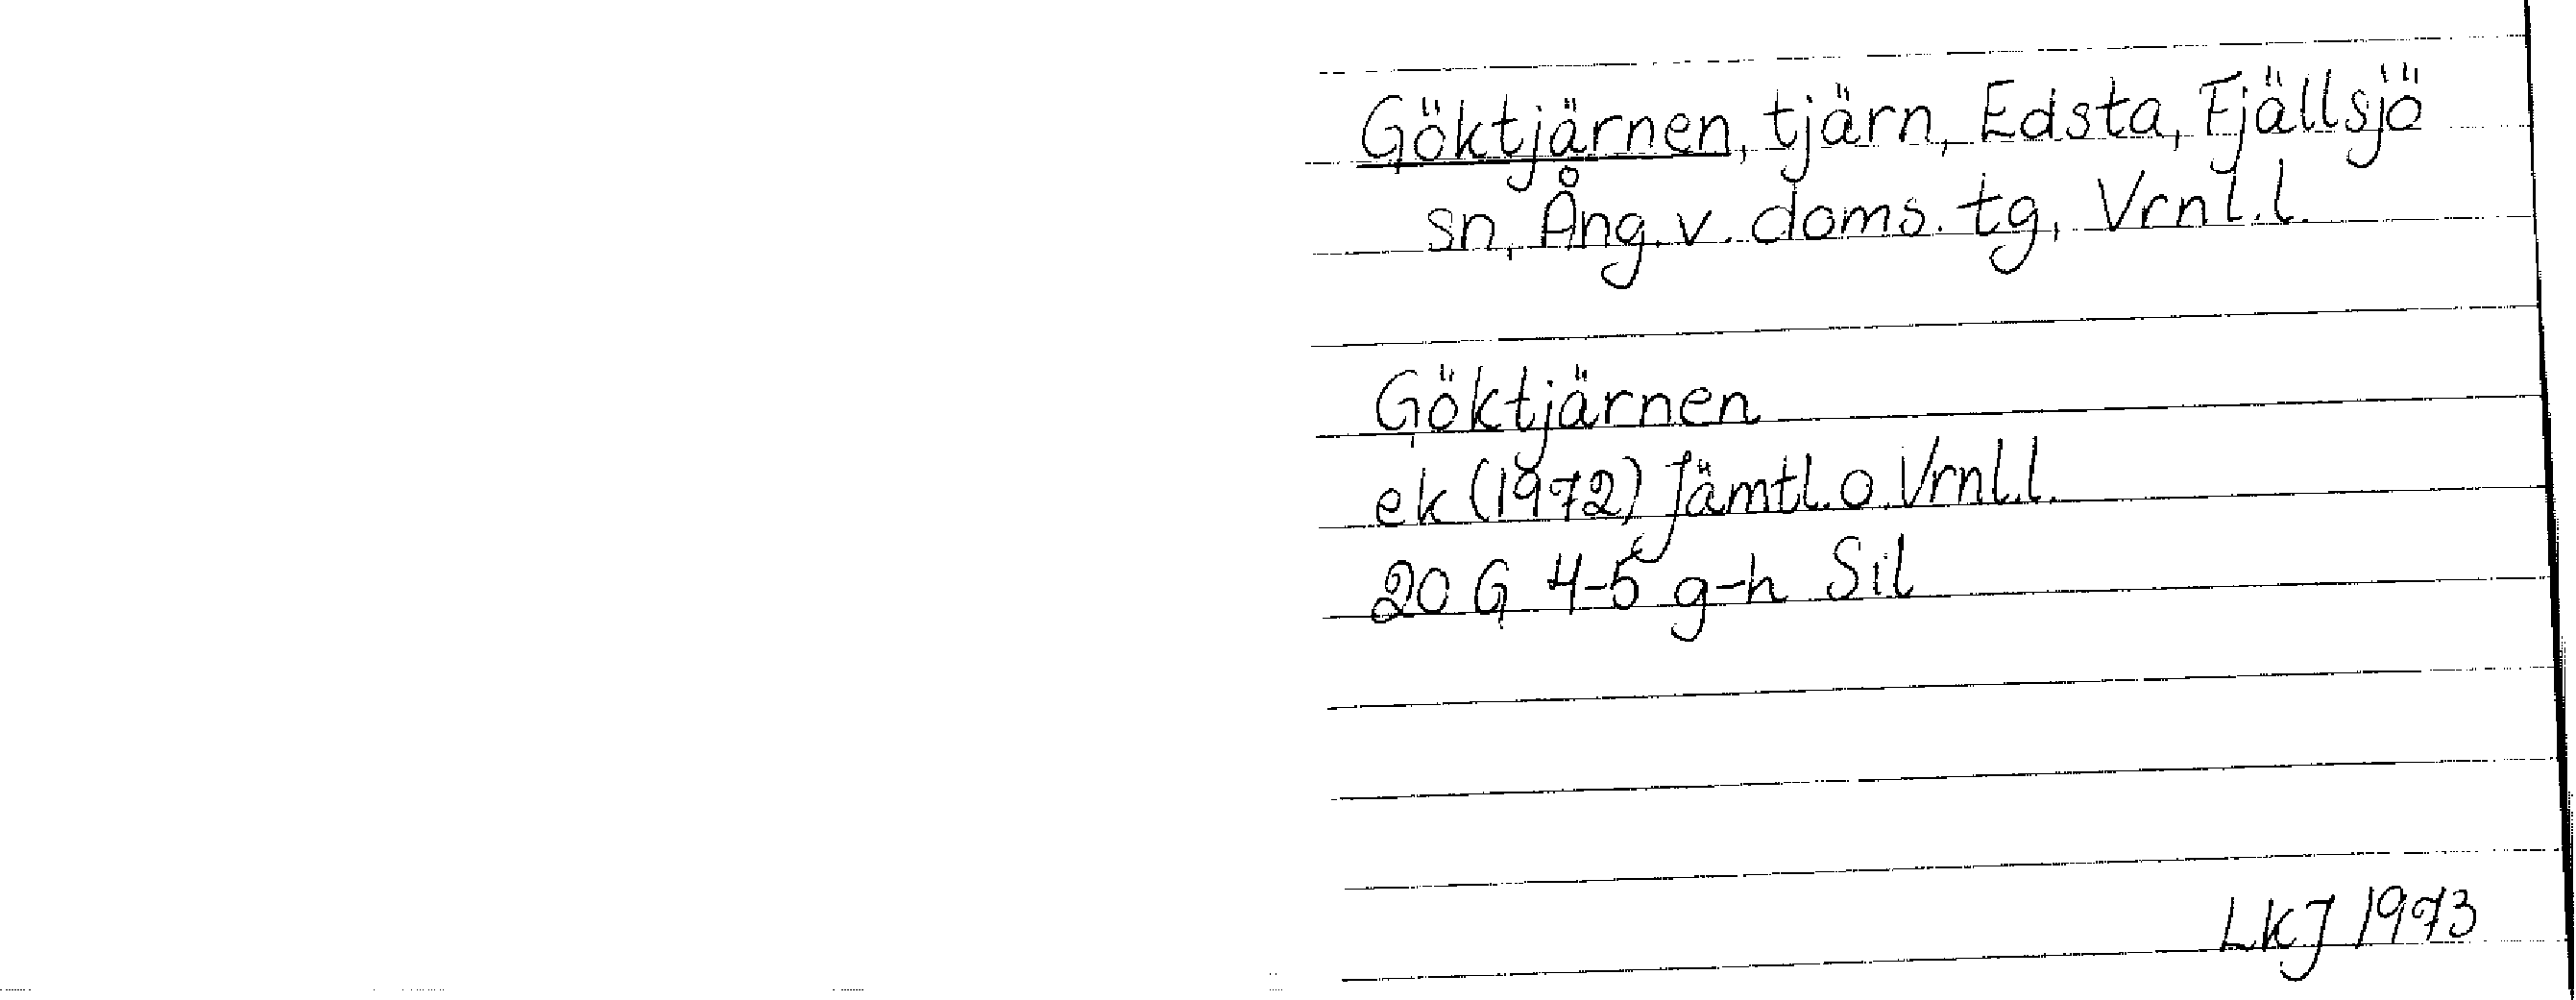 Göktjärnen, tjärn, Edsta, Fjällsjö
sn, Ång. v. doms. tg, Vrnl.l.
Göktjärnen
ek (1972) Jämtl. o. Vrnl.l.
20 G 4-5 g-h Sil
LKJ 1973